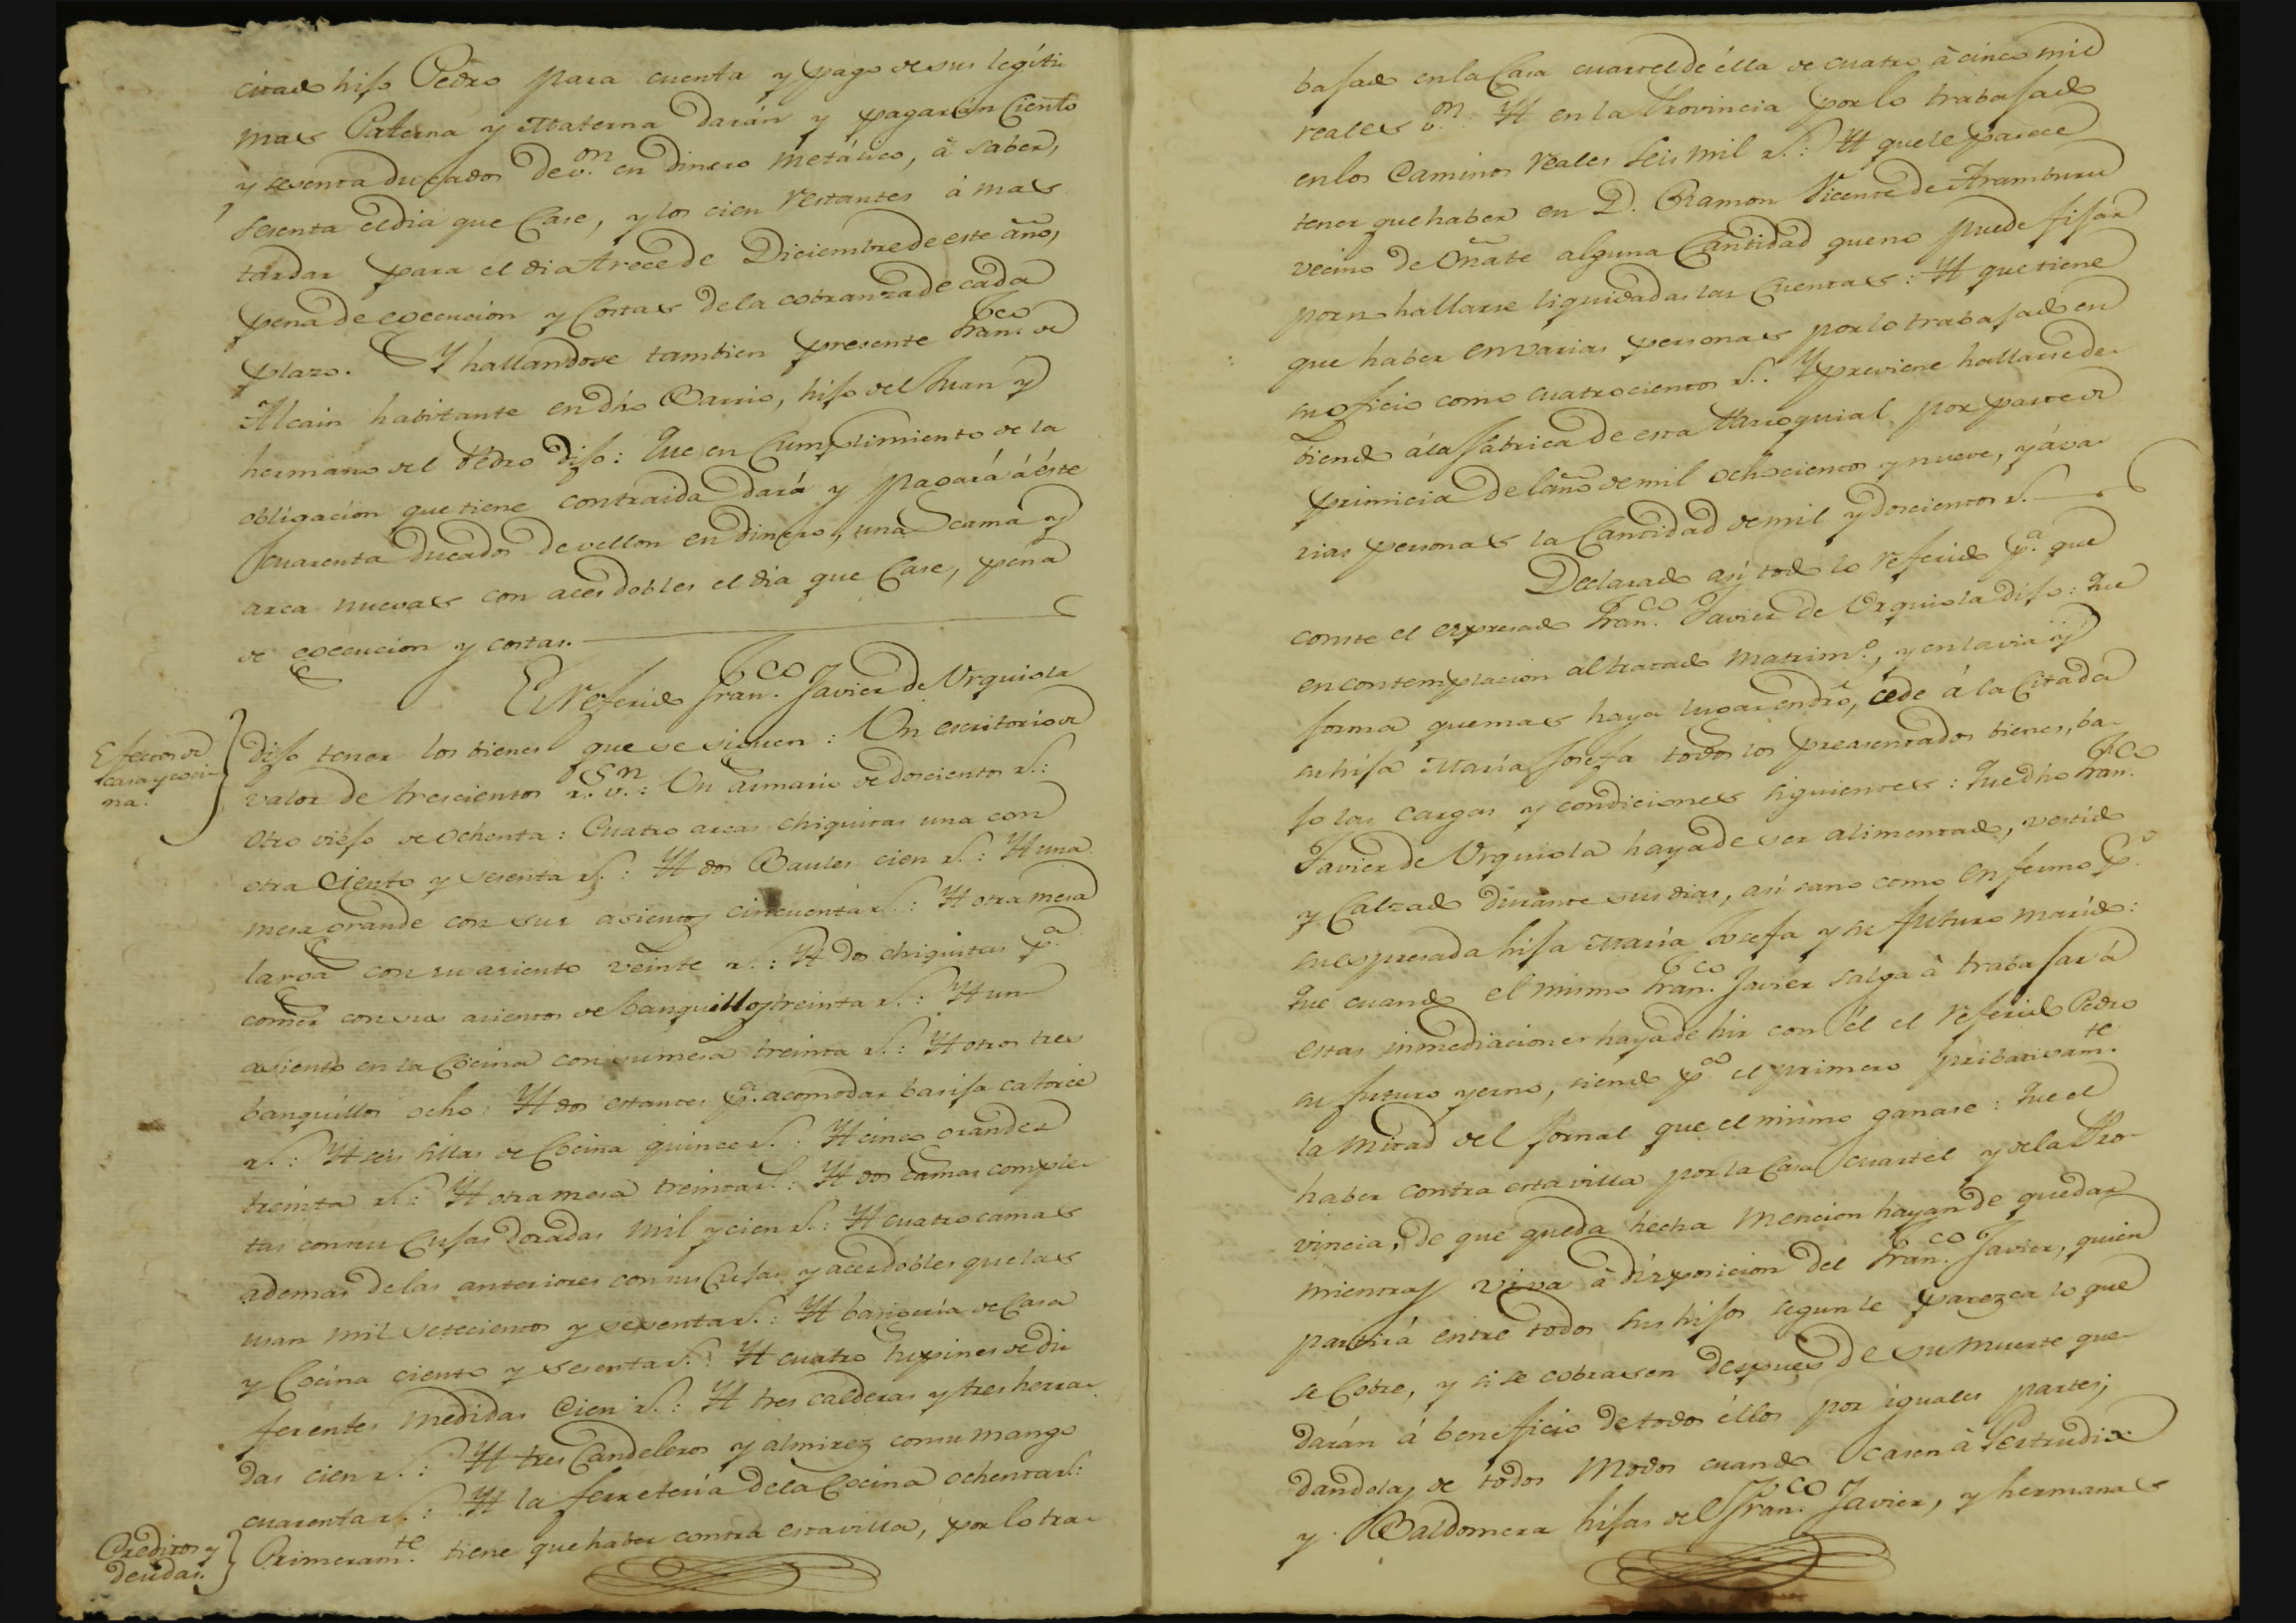 citado hijo Pedro para cuenta y pago de sus legíti
mas Paterna y Materna darán y pagarán Ciento
y sesenta ducados de v.on en dinero metálico, á saber,
sesenta el dia que Case, y los cien restantes á mas
tardar para el dia trece de Diciembre de este año,
pena de execucion y Costas de la cobranza de cada
plazo. Y hallandose tambien presente Fran.co de
Alcain habitante en dho Barrio, hijo del Juan y
hermano del Pedro dijo: Que en Cumplimiento de la
obligacion que tiene contraida dará y pagará á éste
cuarenta ducados de vellon en dinero, una cama y
arca nuevas con aces dobles el dia que Case, pena
de execucion y costas.
El referido Fran.co Javier de Urquiola
Efectos de
casa y coci-
na.
dijo tener los bienes que se siguen: Un escritorio de
valor de trescientos r.s v.n: Un armario de doscientos r.s:
otro viejo de ochenta: Cuatro arcas chiquitas una con
otra ciento y sesenta r.s: Yt dos Baules cien r.s: Yt una
mesa grande con sus asientos cincuenta r.s: Yt otra mesa
larga con su asiento veinte r.s: Yt dos chiquitas p.a
comer con sus asientos de banquillos treinta r.s: Yt un
asiento en la Cocina con su mesa treinta r.s: Yt otros tres
banquillos ocho: Yt dos estantes p.a acomodar bagija catorce
r.s: Yt seis sillas de Cocina quince r.s: Yt cinco grandes
treinta r.s: Yt otra mesa treinta r.s: Yt dos camas comple-
tas con su Cujas doradas mil y cien r.s: Yt cuatro camas
ademas de las anteriores con sus Cujas y aces dobles que las
usan mil setecientos y sesenta r.s: Yt bagigeria de Casa
y Cocina ciento y sesenta r.s: Yt cuatro tupines de di
ferentes medidas cien r.s: Yt tres calderas y tres herra-
das cien r.s: Yt tres Candeleros y almirez con su mango
cuarenta r.s: Yt la ferreteria de la Cocina ochenta r.s:
Creditos y
deudas.
Primeram.te tiene que haber contra esta villa, por lo tra-
bajado en la Casa cuartel de élla de cuatro á cinco mil
reales v.on Yt en la Provincia por lo trabajado
en los Caminos reales seis mil r.s: Yt que le parece
tener que haber en D. Ramon Vicente de Aramburu
vecino de Oñate alguna Cantidad que no puede fijar
por no hallarse liquidadas las Cuentas: Yt que tiene
que haber en varias personas por lo trabajado en
su oficio como cuatrocientos r.s. Y previene hallarse de-
biendo á la fabrica de esta Parroquial por parte de
primicia del año de mil ochocientos y nueve, y á va-
rias personas la Cantidad de mil y doscientos r.s
Declarado asi todo lo referido p.a que
conste el expresado Fran.co Javier de Urquiola dijo: Que
en contemplacion al tratado matrim.o, y en la via y
forma que mas haya lugar en dro, cede á la Citada
su hija María Josefa todos los preasentados bienes, ba-
jo las cargas y condiciones siguientes: Que dho Fran.co
Javier de Urquiola haya de ser alimentado, vestido
y Calzado durante sus dias, asi sano como enfermo p.r
su espresada hija María Josefa y su futuro marido:
Que cuando el mismo Fran.co Javier salga á trabajar á
estas inmediaciones haya de hir con él el referido Pedro
su futuro yerno, siendo p.a el primero pribativam.te
la mitad del jornal que el mismo ganase: Que el
haber contra esta villa por la Casa cuartel y de la Pro-
vincia, de que queda hecha mencion hayan de quedar
mientras viva á disposicion del Fran.co Javier, quien
partirá entre todos sus hijos segun le parezca lo que
se Cobre, y si se cobrasen despues de su muerte que-
darán á beneficio de todos éllos por iguales partes;
dandolas de todos modos cuando casen á Gertrudis
y Baldomera hijas del Fran.co Javier, y hermanas